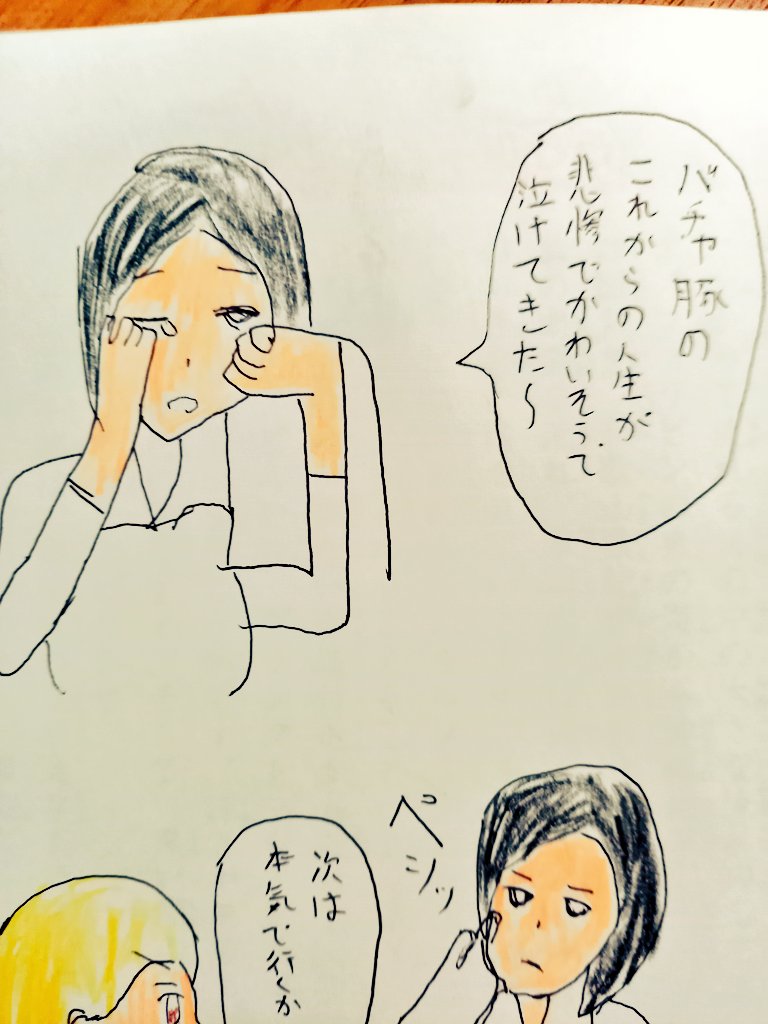 バチャ豚の
これからの人生が
悲惨でかわいそうで
泣けてきた〜
ペシッ
次は
本気で行くか